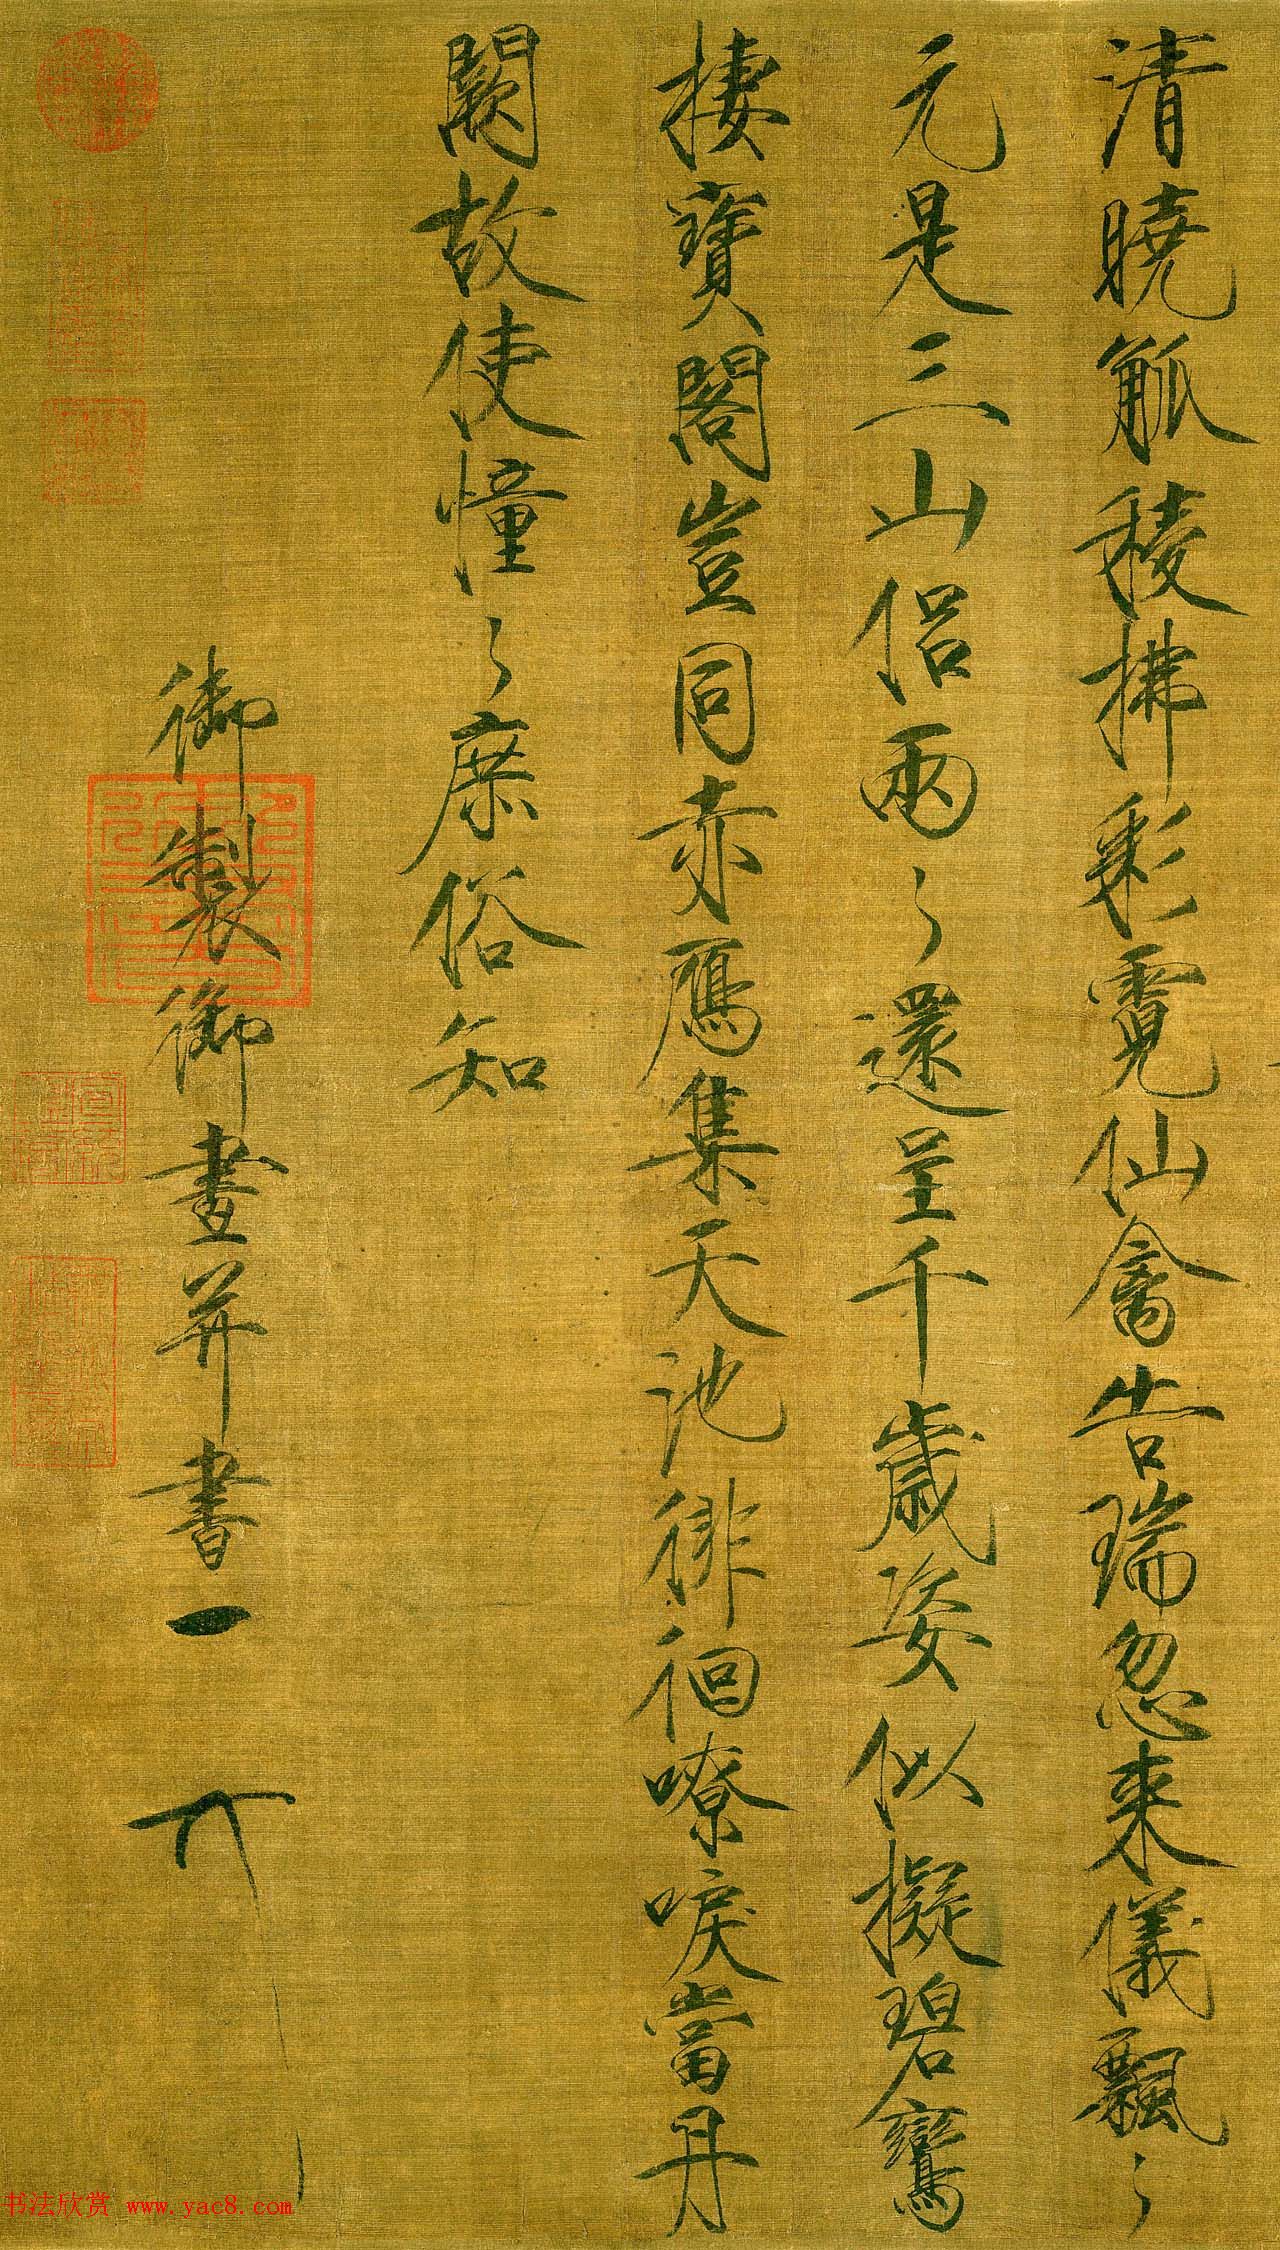 清曉觚稜拂彩霓仙禽告瑞忽来儀飄〻
元是三山侶兩〻還呈千歲姿似擬碧鸞
棲寶閣豈同赤鴈集天池徘徊嘹唳當丹
闕故使憧〻庶俗知
御製御畫并書
書法欣赏 www.yac8.com